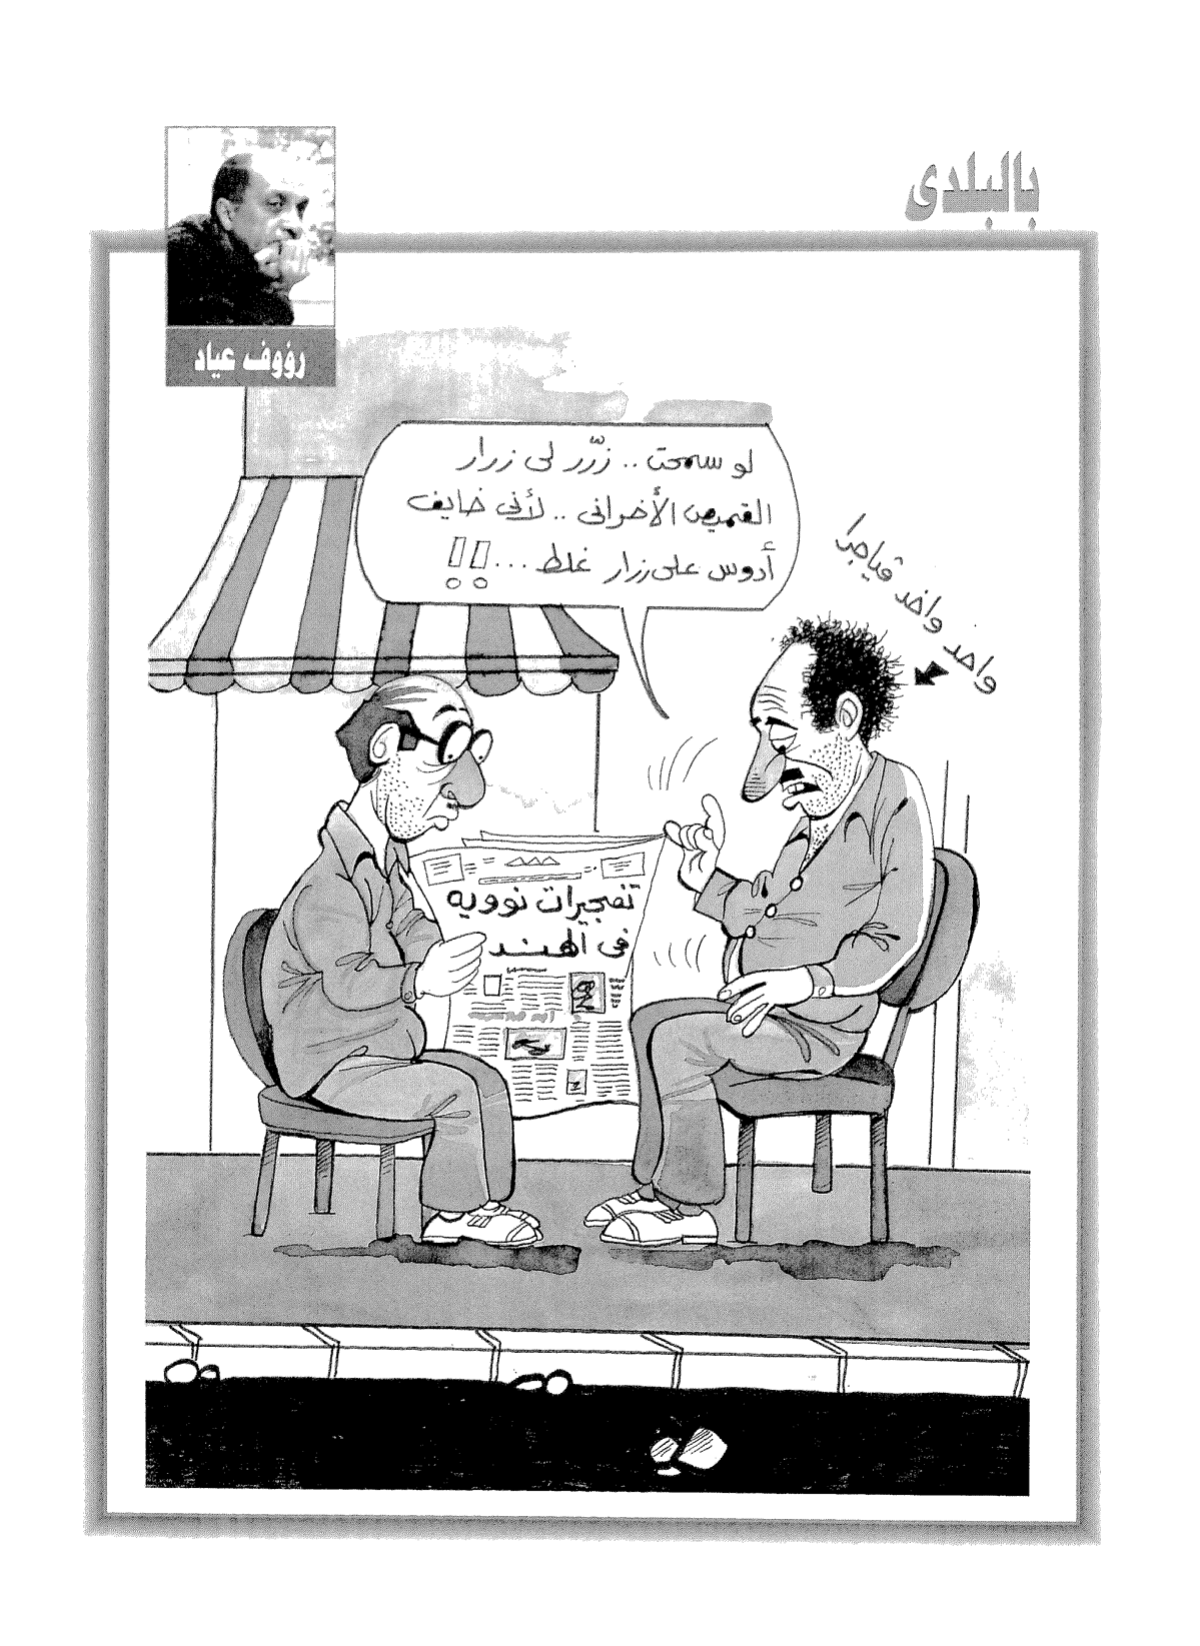 بالبلدى
رؤوف عياد
لو سمحت .. زرّر لى زرار
القميص الأخرانى .. لأنى خايف
أدوس على زرار غلط ...!!
واحد واخد ڤياجرا
تفجيرات نوويه
فى الهند